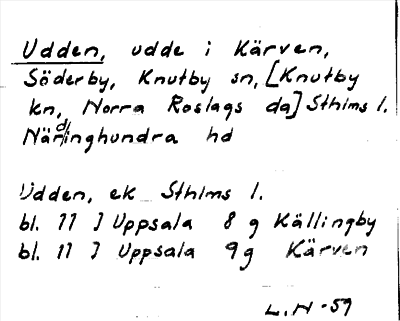 Udden, udde i Kärven,
Söderby, Knutby sn, [Knutby
kn, Norra Roslags da] Sthlms l.
Närdinghundra hd
Udden, ek Sthlms l.
bl. 11 J Uppsala 8 g Källingby
bl. 11 J Uppsala 9g Kärven
L.N-59